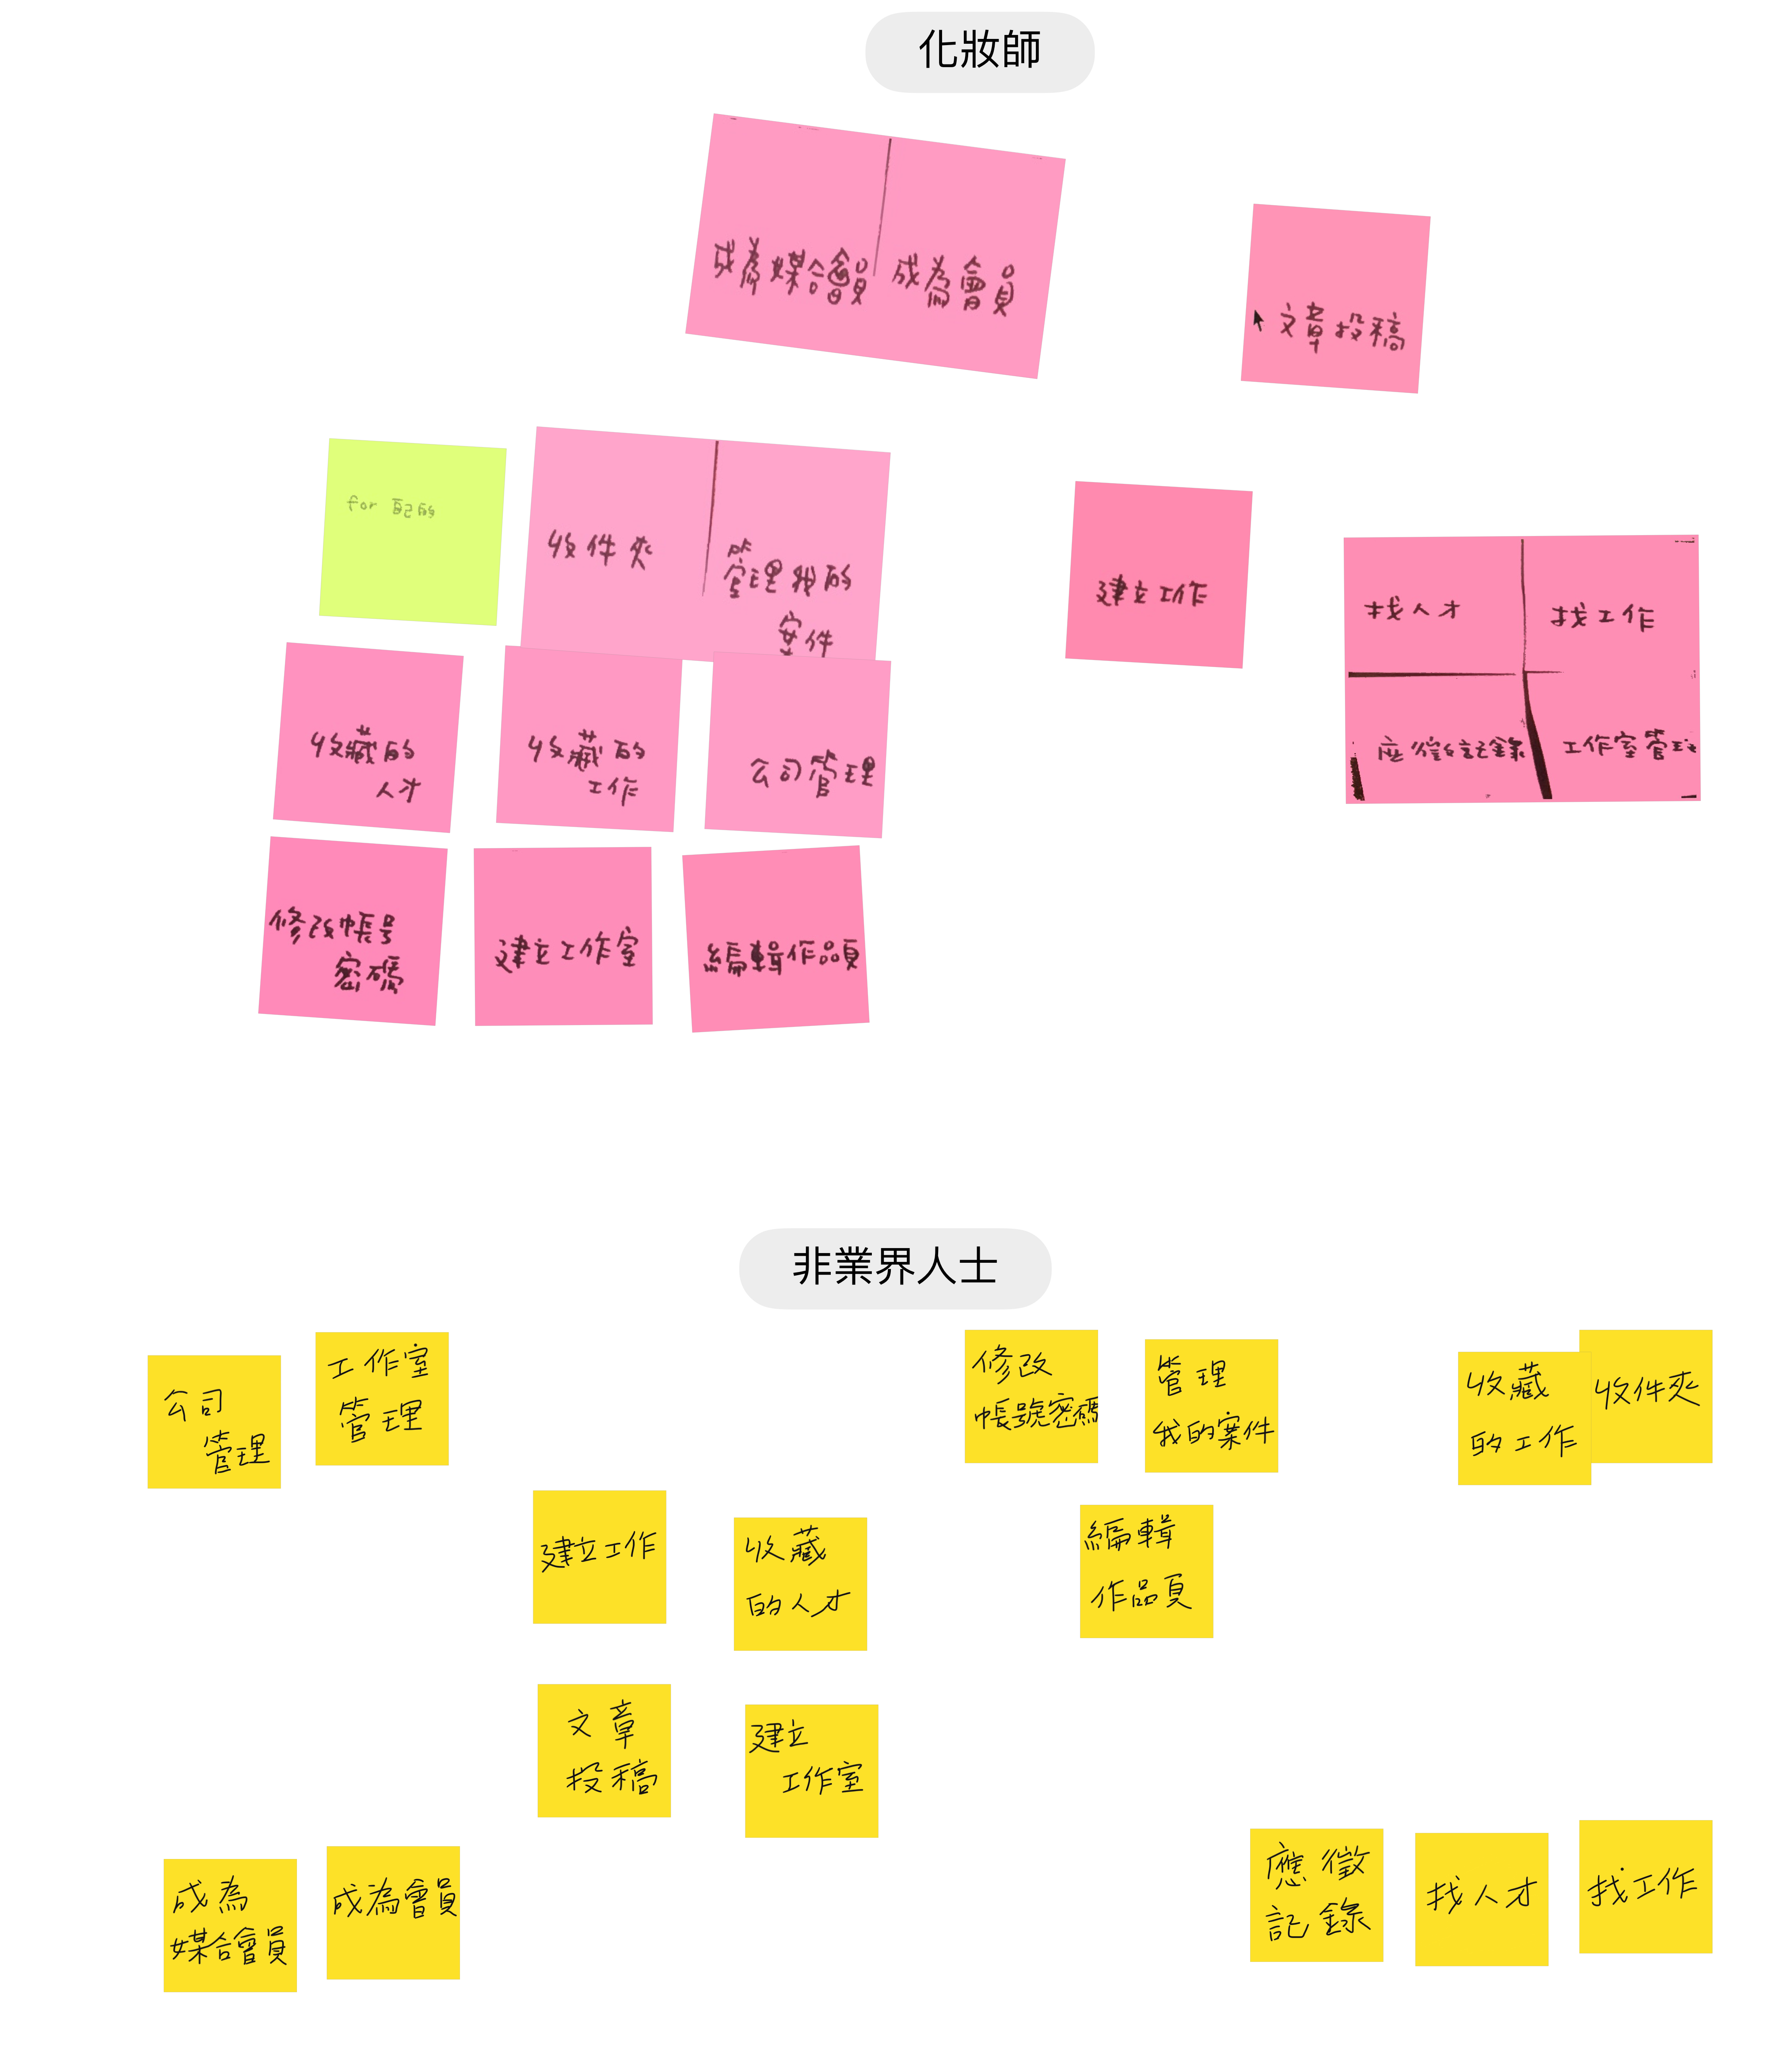 化妝師
成為媒合會員
成為會員
文章投稿
for 自己的
收件夾
管理我的
案件
建立工作
找人才
找工作
應徵記錄
工作室管理
收藏的
人才
收藏的
工作
公司管理
修改帳号
密碼
建立工作室
編輯作品頁
非業界人士
公司
管理
工作室
管理
修改
帳號密碼
管理
我的案件
收藏
的工作
收件夾
建立工作
收藏
的人才
編輯
作品頁
文章
投稿
建立
工作室
成為
媒合會員
成為會員
應徵
記錄
找人才
找工作